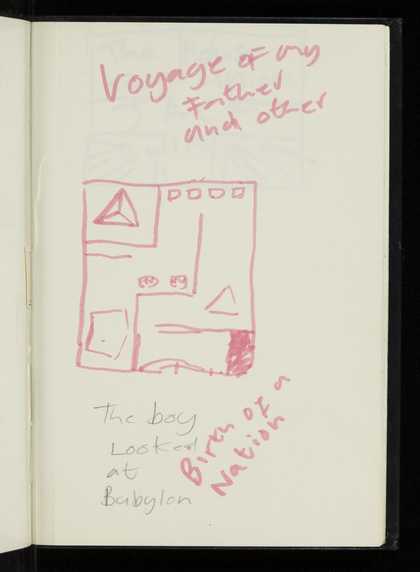 Voyage of my
Father
and other
The boy
Looked
at
Babylon
Birth of a
Nation